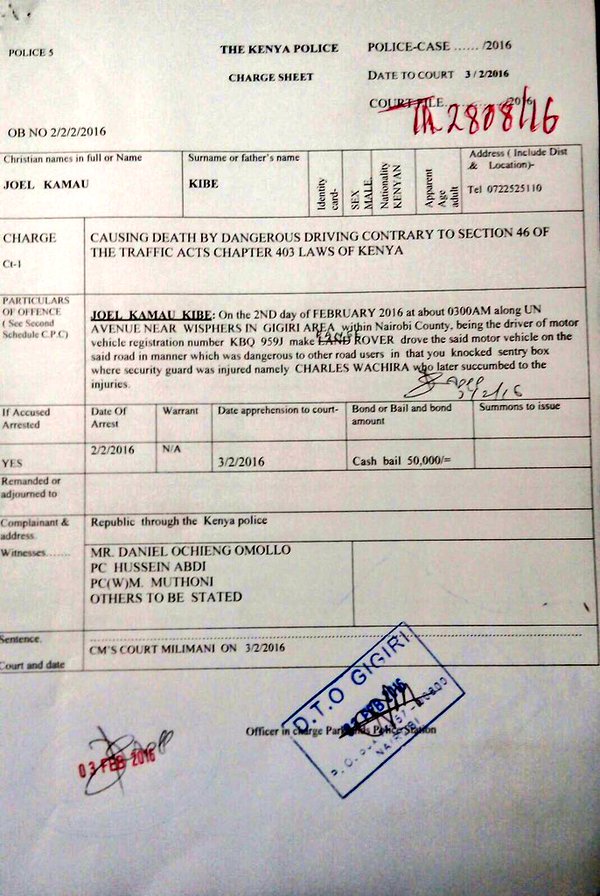 POLICE 5
THE KENYA POLICE
CHARGE SHEET
POLICE-CASE ...... /2016
DATE TO COURT 3/2/2016
COURT FILE. /2016
TR 2808/16
OB NO 2/2/2/2016
Christian names in full or Name
JOEL KAMAU
Surname or father's name
KIBE
Identity card-
SEX MALE.
Nationality KENYAN
Apparent Age adult
Address ( Include Dist & Location)-
Tel 0722525110
CHARGE
Ct-1
CAUSING DEATH BY DANGEROUS DRIVING CONTRARY TO SECTION 46 OF
THE TRAFFIC ACTS CHAPTER 403 LAWS OF KENYA
PARTICULARS
OF OFFENCE
( See Second
Schedule C.P.C)
JOEL KAMAU KIBE: On the 2ND day of FEBRUARY 2016 at about 0300AM along UN
AVENUE NEAR WISPHERS IN GIGIRI AREA within Nairobi County, being the driver of motor
RANGE
vehicle registration number KBQ 959J make LAND ROVER drove the said motor vehicle on the
said road in manner which was dangerous to other road users in that you knocked sentry box
where security guard was injured namely CHARLES WACHIRA who later succumbed to the
injuries.
3/2/16
If Accused
Arrested
YES
Date Of
Arrest
2/2/2016
Warrant
N/A
Date apprehension to court-
3/2/2016
Bond or Bail and bond
amount
Cash bail 50,000/=
Summons to issue
Remanded or
adjourned to
Complainant &
address
Republic through the Kenya police
Witnesses.......
MR. DANIEL OCHIENG OMOLLO
PC HUSSEIN ABDI
PC(W)M. MUTHONI
OTHERS TO BE STATED
Sentence.
Court and date
CM'S COURT MILIMANI ON 3/2/2016
D.T.O GIGIRI
FEB 2016
Officer in charge Parklands Police Station
NAIROBI
03 FEB 2016